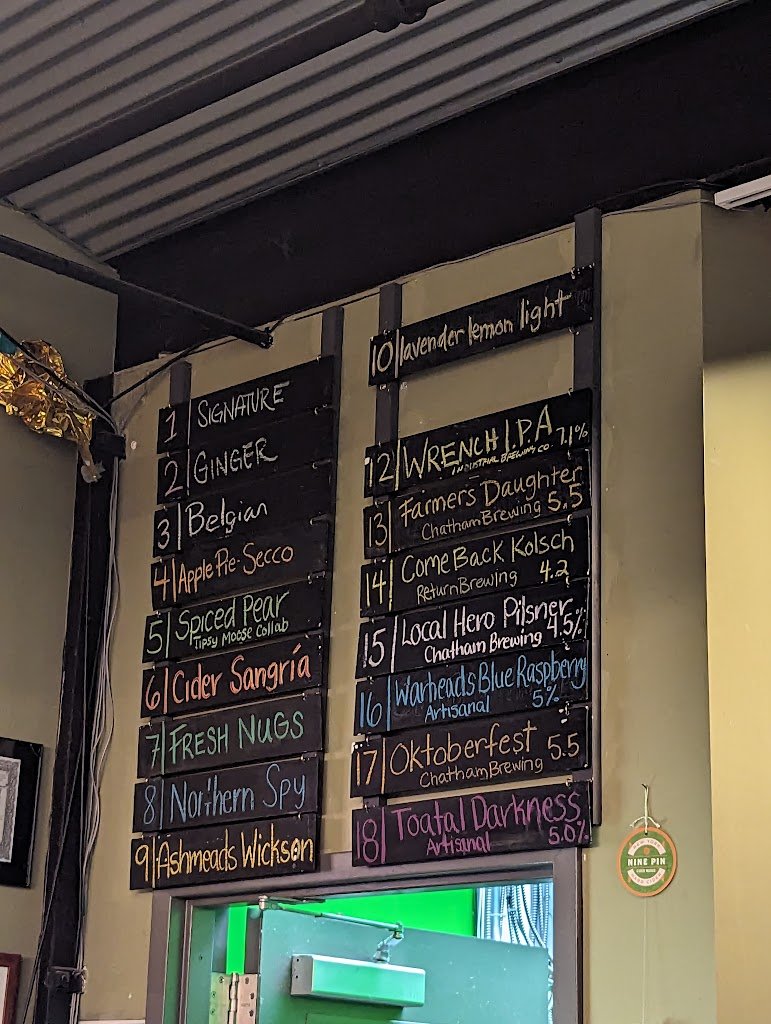 1 SIGNATURE
2 GINGER
3 Belgian
4 Apple Pie-Secco
5 Spiced Pear
Tipsy Moose Collab
6 Cider Sangría
7 FRESH NUGS
8 Northern Spy
9 Ashmeads Wickson
10 lavender lemon light
12 WRENCH I.P.A
INDUSTRIAL BREWING CO. 7.1%
13 Farmers Daughter
Chatham Brewing 5.5
14 Come Back Kolsch
Return Brewing 4.2
15 Local Hero Pilsner
Chatham Brewing 4.5%
16 Warheads Blue Raspberry
Artisanal 5%
17 Oktoberfest 5.5
Chatham Brewing
18 Toatal Darkness
Artisanal 5.0%
NEW YORK
NINE PIN
CIDER WORKS
HARD CIDER